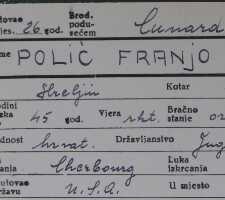 tovao
jes. 26 god. Brod. podu-
sećem Cunard
me POLIĆ FRANJO
Hreljin Kotar
odini
ka 45 god. Vjera rkt. Bračno
stanje
dnost hrvat. Državljanstvo Jug
Cherbourg Luka
iskrcanja
utovao
ržavu U.S.A. U mjesto